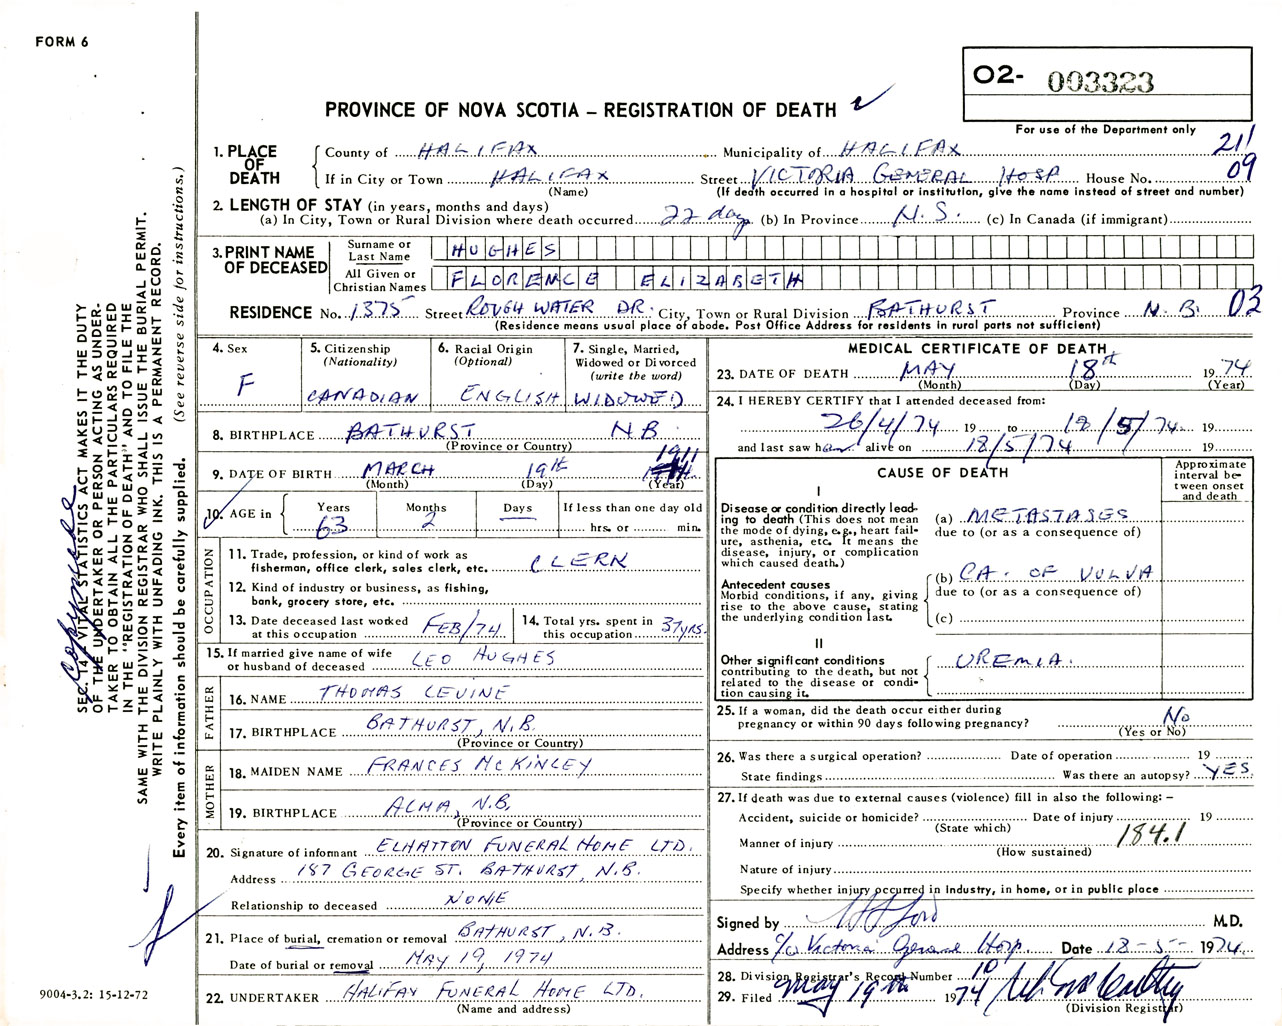 FORM 6
O2- 003323
PROVINCE OF NOVA SCOTIA – REGISTRATION OF DEATH
For use of the Department only
211
09
1. PLACE OF DEATH
County of HALIFAX Municipality of HALIFAX
If in City or Town HALIFAX Street VICTORIA GENERAL HOSP House No.
(Name) (If death occurred in a hospital or institution, give the name instead of street and number)
2. LENGTH OF STAY (in years, months and days)
(a) In City, Town or Rural Division where death occurred 22 days (b) In Province N.S. (c) In Canada (if immigrant)
3. PRINT NAME OF DECEASED
Surname or Last Name HUGHES
All Given or Christian Names FLORENCE ELIZABETH
RESIDENCE No. 1375 Street ROUGH WATER DR. City, Town or Rural Division BATHURST Province N.B. 03
(Residence means usual place of abode. Post Office Address for residents in rural parts not sufficient)
4. Sex
F
5. Citizenship
(Nationality)
CANADIAN
6. Racial Origin
(Optional)
ENGLISH
7. Single, Married,
Widowed or Divorced
(write the word)
WIDOWED
8. BIRTHPLACE BATHURST N.B.
(Province or Country)
9. DATE OF BIRTH MARCH 19th 1911
(Month) (Day) (Year)
10. AGE in
Years
63
Months
2
Days
—
If less than one day old
hrs. or min.
OCCUPATION
11. Trade, profession, or kind of work as
fisherman, office clerk, sales clerk, etc. CLERK
12. Kind of industry or business, as fishing,
bank, grocery store, etc.
13. Date deceased last worked
at this occupation FEB/74
14. Total yrs. spent in
this occupation 37 yrs.
15. If married give name of wife
or husband of deceased LEO HUGHES
FATHER
16. NAME THOMAS LEVINE
17. BIRTHPLACE BATHURST, N.B.
(Province or Country)
MOTHER
18. MAIDEN NAME FRANCES McKINLEY
19. BIRTHPLACE ALMA, N.B,
(Province or Country)
20. Signature of informant ELHATTON FUNERAL HOME LTD.
Address 187 GEORGE ST. BATHURST, N.B.
Relationship to deceased NONE
21. Place of burial, cremation or removal BATHURST, N.B.
Date of burial or removal MAY 19, 1974
22. UNDERTAKER HALIFAX FUNERAL HOME LTD.
(Name and address)
MEDICAL CERTIFICATE OF DEATH
23. DATE OF DEATH MAY 18th 1974
(Month) (Day) (Year)
24. I HEREBY CERTIFY that I attended deceased from:
26/4/74 19 to 18/5/74 19
and last saw her alive on 18/5/74 19
CAUSE OF DEATH
Approximate
interval be-
tween onset
and death
I
Disease or condition directly lead-
ing to death (This does not mean
the mode of dying, e.g., heart fail-
ure, asthenia, etc. It means the
disease, injury, or complication
which caused death.)
(a) METASTASES
due to (or as a consequence of)
Antecedent causes
Morbid conditions, if any, giving
rise to the above cause, stating
the underlying condition last.
(b) CA. OF VULVA
due to (or as a consequence of)
(c)
II
Other significant conditions
contributing to the death, but not
related to the disease or condi-
tion causing it.
UREMIA.
25. If a woman, did the death occur either during
pregnancy or within 90 days following pregnancy? No
(Yes or No)
26. Was there a surgical operation? Date of operation 19
State findings Was there an autopsy? YES
27. If death was due to external causes (violence) fill in also the following: –
Accident, suicide or homicide? Date of injury 19
(State which)
184.1
Manner of injury
(How sustained)
Nature of injury
Specify whether injury occurred in Industry, in home, or in public place
Signed by M.D.
Address c/o Victoria General Hosp. Date 18-5- 1974
28. Division Registrar's Record Number 10
29. Filed May 19th 1974
(Division Registrar)
SEC. 14 VITAL STATISTICS ACT MAKES IT THE DUTY
OF THE UNDERTAKER OR PERSON ACTING AS UNDER-
TAKER TO OBTAIN ALL THE PARTICULARS REQUIRED
IN THE "REGISTRATION OF DEATH" AND TO FILE THE
SAME WITH THE DIVISION REGISTRAR WHO SHALL ISSUE THE BURIAL PERMIT.
WRITE PLAINLY WITH UNFADING INK. THIS IS A PERMANENT RECORD.
Every item of information should be carefully supplied. (See reverse side for instructions.)
9004-3.2: 15-12-72